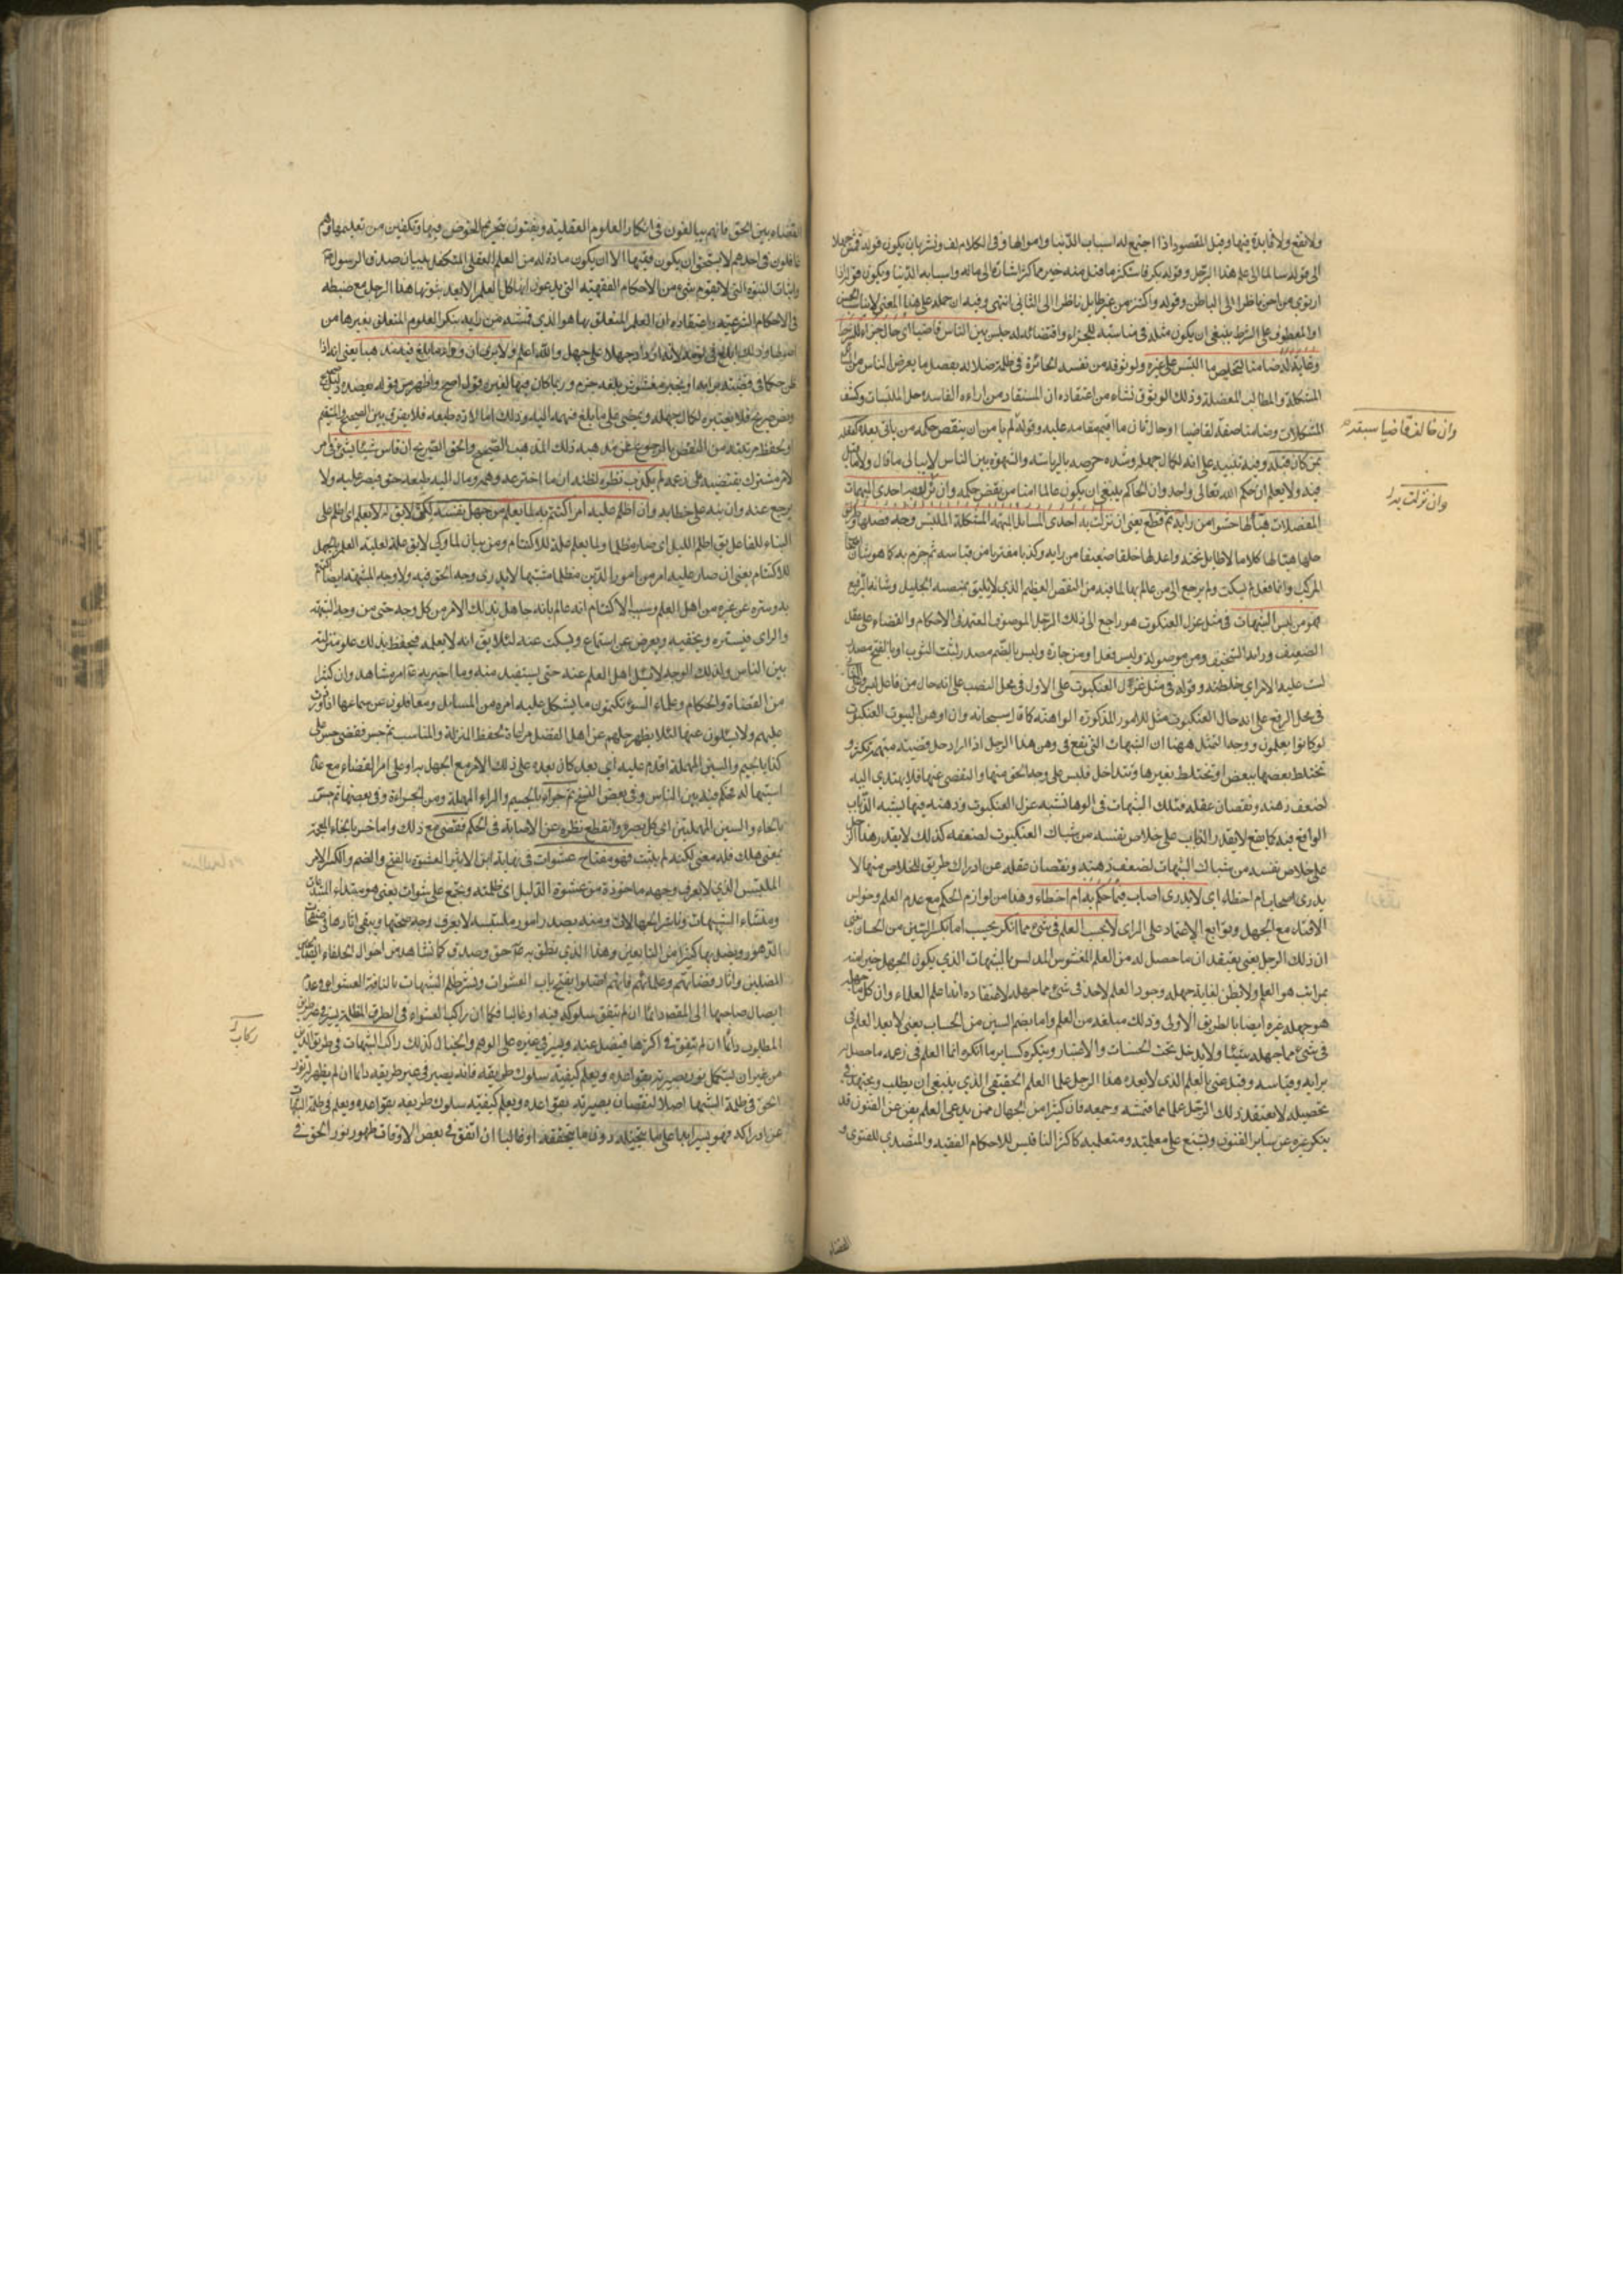 ولا نفع ولا فايدة فيها وقيل المقصود اذا اجتمع له اسباب الدنيا واموالها وفى الكلام لف ونشر بان يكون قوله قمش جهلا
الى قوله سالما الى علم هذا الرجل وقوله بكر فاستكثر ما قل منه خير مما كثر اشارة الى ماله واسبابه الدنيا ويكون قوله اذا
ارتوى من اجن ناظرا الى الباطن وقوله واكثر من غير طايل ناظرا الى الثانى انتهى وفيه ان حمله على هذا المعنى لا يناسب
او المعطوف على الشرط ينبغى ان يكون مثله فى مناسبته للجزاء واقتضائه له جلس بين الناس قاضيا اى حال جزاء للشرط
ضامنا لتخليص ما التبس على غيره ولوثوقه من نفسه الحائرة فى ظلمة ضلاله بفصل ما يعرض للناس من
المشكلة والمطالب المعضلة وذلك الوثوق نشاء من اعتقاده ان المستفاد من اراءه الفاسدة حل الملتبسات وكشف
وان خالف قاضيا سبقه
المشكلات وضامنا صفة لقاضيا او حال ثان ما اقيم مقامه عليه وقوله لم يأمن ان ينقض حكمه من يأتى بعده كفعله
بمن كان قبله وفيه تنبيه على انه لكمال جهله وشدة حرصه بالرياسة والشهرة بين الناس لا يبالى ما قال ولا ما قيل
وان نزلت به
فيه ولا يعلم ان حكم الله تعالى واحد وان الحاكم ينبغى ان يكون عالما امنا من نقض حكمه وان نزلت به احدى المبهمات
المعضلات هيّأ لها حشوا من رأيه ثم قطع يعنى ان نزلت به احدى المسائل المبهمة المشكلة الملتبس وجه فصلها وطريق
حلها هيّأ لها كلاما لا طايل تحته واعد لها خلقا ضعيفا من رايه وكذبا مفتريا من قياسه ثم جزم به كما هو شان
المركب وانما فعل لم يسكت ولم يرجع الى من عالم بها لما فيه من النقص العظيم الذى لا يليق بمنصبه الجليل وشانه الرفيع
فهو من لبس الشبهات فى مثل غزل العنكبوت هو راجع الى ذلك الرجل الموصوف المعتمد فى الاحكام والقضاء على عقله
الضعيف ورايه السخيف ومن موصولة ولبس فعل او من جارة ولبس بالضم مصدر لبست الثوب او بالفتح مصدر
لبست عليه الامر اى خلطته وقوله فى مثل غزل العنكبوت على الاول فى محل النصب على انه حال من فاعل لبس وعلى
فى محل الرفع على انه حال العنكبوت مثل للامور المذكورة الواهنة كما قال سبحانه وان اوهن البيوت لبيت العنكبوت
لو كانوا يعلمون ووجه التمثيل ههنا ان الشبهات التى تقع فى وهن هذا الرجل اذا اراد حل قضية مبهمة تكثر و
تختلط بعضها ببعض او تختلط بغيرها وتتداخل فليس على وجه الحق منها والتفصى عنها فلا يهتدى اليه
لضعف ذهنه ونقصان عقله فتلك الشبهات فى الوهاء تشبه غزل العنكبوت وذهنه فيها يشبه الذباب
الواقع فيه كما يقع لا يقدر الذباب على خلاص نفسه من شباك العنكبوت لضعفه كذلك لا يقدر هذا الرجل
على خلاص نفسه من شباك الشبهات لضعف ذهنه ونقصان عقله عن ادراك طريق الخلاص منها لا
يدرى اصاب ام اخطاء اى لا يدرى اصاب فيما حكم به ام اخطاء وهذا من لوازم الحكم مع عدم العلم وخواص
الافتاء مع الجهل وتوابع الاعتماد على الراى لا يحسب العلم فى شئ مما انكر يحسب اما بكسر السين من الحسبان يعنى
ان ذلك الرجل يعنى يعتقد ان ما حصل له من العلم المغشوش المدلس بالشبهات الذى يكون الجهل خيرا منه
بمراتب هو العلم ولا يظن لغاية جهله وجود العلم لاحد فى شئ مما جهله لاعتقاده انه اعلم العلماء وان كل ما جهله
هو جهله غيره ايضا بالطريق الاولى وذلك مبلغه من العلم واما بضم السين من الحساب يعنى لا يعد العلم فى
فى شئ مما جهله شيئا ولا يدخل تحت الحساب والاعتبار وينكره كساير ما انكره انما العلم فى زعمه ما حصل
برايه وقياسه وقيل عنى بالعلم الذى لا يعده هذا الرجل علما العلم الحقيقى الذى ينبغى ان يطلب ويجتهد فى
تحصيله لا يعتقد ذلك الرجل علما مما قمشه وجمعه فان كثيرا من الجهال ممن يدعى العلم بفن من الفنون قد
ينكر غيره عن ساير الفنون ويشنع على معلميه ومتعلميه كاكثر الناقلين للاحكام الفقهية والمتصدى للفتوى و
القضاء
القضاء بين الخلق فانهم يبالغون فى انكار العلوم العقلية ويفتون بتحريم الخوض فيها وتكفير من تعلمها وهم
غافلون فى احدهم لا يستحق ان يكون فقيها الا ان يكون مادة له من العلم العقلى المتكفل ببيان صدق الرسول
واثبات النبوة التى لا تقوم شئ من الاحكام الفقهية التى يدعون انها كل العلم الا بعد ثبوتها هذا الرجل مع ضبطه
فى الاحكام الشرعية واعتقاده ان العلم المتعلق بها هو الذى قمشه من رايه ينكر العلوم المتعلق بغيرها من
اصولها وذلك ابلغ فى لانه ازداد جهلا على جهل والله اعلم ولا يرى ان وراء ما بلغ فيه مذهبا يعنى انه اذا
ظن حكما فى قضية برايه او بخبر مغشوش بلغه جزم وربما كان فيها لغيره قول اصح واظهر من قوله يعضده دليل
ونص صريح فلا يعتبره لكمال جهله ويمضى على ما بلغ فهمه اليه وذلك اما لانه طبعه فلا يفرق بين الصحيح والسقيم
او لحفظ مرتبته من النقص بالرجوع عن مذهبه ذلك المذهب الصحيح والحق الصريح ان قاس شيئا بشئ فى امر
لامر مشترك يقتضيه على زعمه لم يكذب نظره لظنه ان ما اخترعه وهمه ومال اليه طبعه حق فيصر عليه ولا
يرجع عنه وان نبه على خطايه وان اظلم عليه امر اكتتم به لما يعلم من جهل نفسه لكى لا يق له لا يعلم اى اظلم على
البناء للفاعل يق اظلم الليل اى صار مظلما ولما يعلم علة للاكتتام ومن بيان لما وكى لا يق علة لعلية العلم بالجهل
للاكتتام يعنى ان صار عليه امر من امور الدين مظلما مشتبها لا يدرى وجه الحق فيه ولا وجه المشبهة ايضا اكتتم
به وستره عن غيره من اهل العلم وسبب الاكتتام انه عالم بانه جاهل بذلك الامر من كل وجه حتى من وجه الشبهة
والراى فيستره ويخفيه ويعرض عن استماع ويسكت عنه لئلا يق انه لا يعلمه فيحفظ بذلك علو منزلته
بين الناس ولذلك الوجه لا يسئل اهل العلم عنه حتى يستفيد منه وما اخبر به امر مشاهد وان كثيرا
من القضاة والحكام وعلماء السوء يكتمون ما يشكل عليه امره من المسايل ويتغافلون عن سماعها اذا وردت
عليهم ولا يسئلون عنها لئلا يظهر جهلهم عن اهل الفضل مراعاة لحفظ المنزلة والمناسب ثم جسر فقضى جسر على
كذا بالجيم والسين المهملة اقدم عليه اى بعد كان بعده على ذلك الامر مع الجهل به او على امر القضاء مع عدم
استيهاله لحكم فيه بين الناس وفى بعض النسخ ثم جراء بالجيم والراء المهملة ومن الجراءة وفى بعضها ثم حسر
بالحاء والسين المهملتين اى كل بصره وانقطع نظره عن الاصابة فى الحكم فقضى مع ذلك واما خسر بالخاء المعجمة
بمعنى هلك فله معنى لكنه لم يثبت فهو مفتاح عشوات فى نهاية ابن الاثير العشوة بالفتح والضم والكسر الامر
الملتبس الذى لا يعرف وجهه ماخوذة من عشوة الليل اى ظلمته وتجمع على عشوات يعنى هو مبتداء الشبهات
ومنشاء الشبهات وناشر الجهالات ومنه يصدر امور ملتبسة لا يعرف وجه صحتها ويبقى اثارها فى صفحات
الدهور ويضل بها كثيرا من التابعين وهذا الذى نطق به حق وصدق كما نشاهد من احوال الخلفاء
المضلين واثار قضاتهم وعلمائهم فانهم اضلوا بفتح باب العشوات ونشر ظلم الشبهات بالناقة العشواء وعدم
ركاب
ايصال صاحبها الى المقصد دائما ان لم يتفق سلوكه فيه او غالبا فكما ان راكب العشواء فى الطرق المظلمة يسير فى غير طريق
المطلوب دائما ان لم يتفق فى اكثرها فيضل عنه ويسير فى غيره على الوهم والخيال كذلك راكب الشبهات فى طريق الدين
من غير ان يستكمل نور بصيرته بقواعده ويعلم كيفية سلوك طريقه فانه يصير فى غير طريقه دائما ان لم يظهر له نور
الحق فى ظلمة الشبهات اصلا لنقصان بصيرته بقواعده ويعلم كيفية سلوك طريقه بقواعده ويعلم فى ظلمة الشبهات
عن ادراكه فهو يسير ابدا على ما يتخيله دون ما يتحققه او غالبا ان اتفق فى بعض الاوقات ظهور نور الحق فى